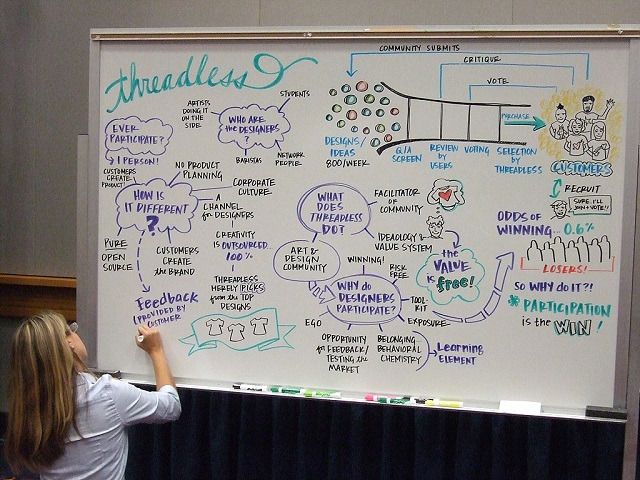 threadless
COMMUNITY SUBMITS
CRITIQUE
VOTE
ARTISTS
DOING IT
ON THE
SIDE
STUDENTS
WHO ARE
the DESIGNERS
?
BARISTAS
NETWORK
PEOPLE
EVER
PARTICIPATE?
1 PERSON!
CUSTOMERS
CREATE
PRODUCT
NO PRODUCT
PLANNING
HOW IS
IT DIFFERENT
?
CORPORATE
CULTURE
A
CHANNEL
for DESIGNERS
CREATIVITY
is OUTSOURCED...
100%
THREADLESS
MERELY PICKS
from the TOP
DESIGNS
PURE
OPEN
SOURCE
CUSTOMERS
CREATE
the BRAND
Feedback
PROVIDED BY
CUSTOMER
DESIGNS/
IDEAS
800/WEEK
Q/A
SCREEN
REVIEW
by
USERS
VOTING
SELECTION
by
THREADLESS
PURCHASE
CUSTOMERS
RECRUIT
SURE, I'LL
JOIN + VOTE!!
WHAT
DOES
THREADLESS
DO?
FACILITATOR
OF
COMMUNITY
IDEOLOGY &
VALUE SYSTEM
ART &
DESIGN
COMMUNITY
the
VALUE
is free!
WINNING!
RISK
FREE
WHY do
DESIGNERS
PARTICIPATE?
TOOL
KIT
EXPOSURE
EGO
OPPORTUNITY
for FEEDBACK/
TESTING the
MARKET
BELONGING
BEHAVIORAL
CHEMISTRY
Learning
ELEMENT
ODDS OF
WINNING... 0.6%
LOSERS!
SO WHY DO IT?!
* PARTICIPATION
is the WIN!